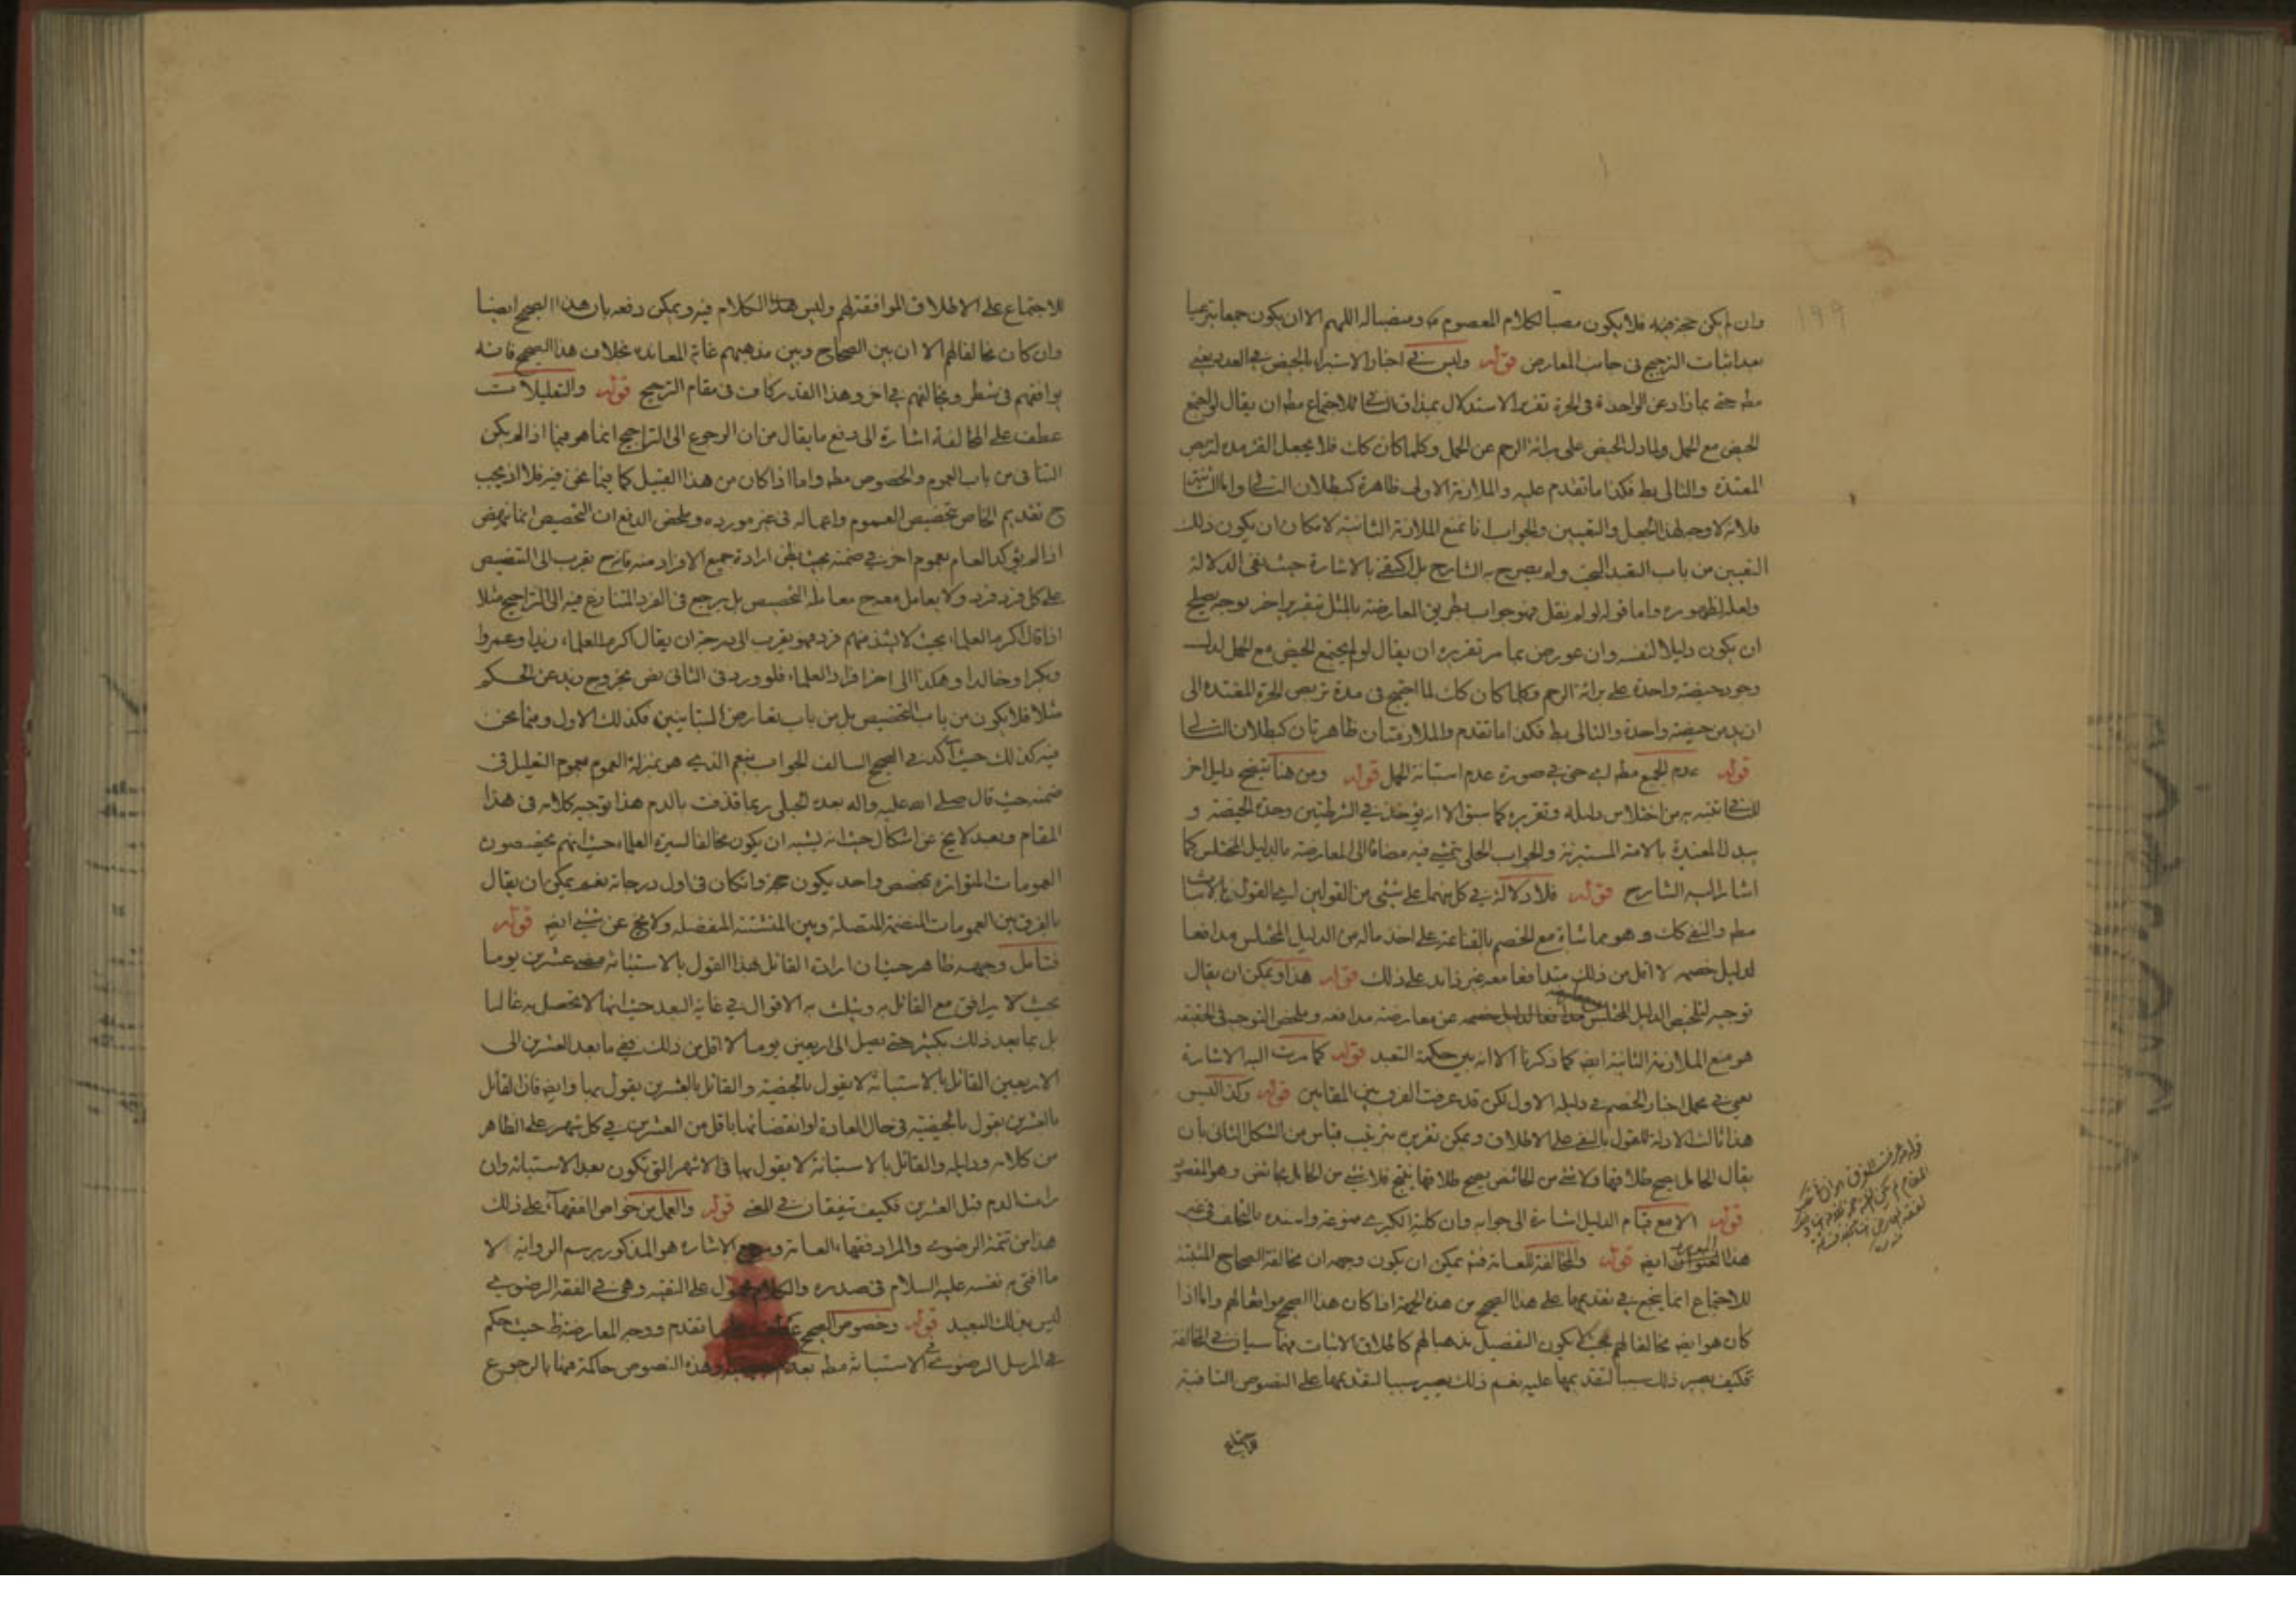 وان لم يكن حجة فيه فلا يكون مصبا لكلام المعصوم ومضبا له اللهم الا ان يكون جمعا تبرعيا
بعد اثبات الترجيح فى جانب المعارض قوله وليس فى اخبار الاستبراء بالحيض فى العدد يعنى
مط حتى بما زاد عن الواحدة فى الحرة تقرير الاستدلال بمذاق الشكل للاجتماع مط ان يقال لو اجتمع
الحيض مع الحمل ولما دل الحيض على برائة الرحم عن الحمل وكلما كان كك فلا يجعل القرء مدة لتربص
المعتدة والتالى بط فكذا ما تقدم عليه والملازمة الاولى ظاهرة كبطلان التالى واما الثانية
فلانه لا وجه لهذا الجعل والتعيين والجواب انا نمنع الملازمة الثانية لامكان ان يكون ذلك
التعيين من باب التعبد البحت ولم يصرح به الشارح بل اكتفى بالاشارة حيث نفى الدلالة
ولعله لظهوره واما قوله لو لم نقل فهو جواب بطريق المعارضة بالمثل بتقرير اخر بوجه يصلح
ان يكون دليلا لنفسه وان عورض بما مر تقريره ان يقال لو لم يجتمع الحيض مع الحمل لدل
وجود حيضة واحدة على برائة الرحم وكلما كان كك لما احتيج فى مدة تربص الحرة المعتدة الى
ازيد من حيضة واحدة والتالى بط فكذا ما تقدم والملازمتان ظاهرتان كبطلان التالى
قوله عدم الجمع مط اى حتى فى صورة عدم استبانة الحمل قوله ومن هنا يتضح دليل اخر
للشك نتبه به من اختلاس دليله وتقريره كما سبق الا انه يؤخذ فى الشرطيتين وحدة الحيضة و
يبدل المعتدة بالامة المستبرئة والجواب الحلى يتمشى فيه مضافا الى المعارضة بالدليل المختلس كما
اشار اليه الشارح قوله فلا دلالة فى كل منهما على شئى من القولين اى القول بالاثبات
مط والنفى كك وهو مماشاة مع الخصم بالقناعة على اخذ ماله من الدليل المختلس مدافعا
لدليل خصمه لا اقل من ذلك متدافعا معه غير زائد على ذلك قوله هذا ويمكن ان يقال
توجيه لتلخيص الدليل المختلس مدافعا لدليل خصمه عن معارضة مدافعه وملخص التوجيه فى الحقيقة
هو منع الملازمة الثانية ايضا كما ذكرنا الا انه بين حكمة التعبد قوله كما مرت اليه الاشارة
يعنى فى محمل اخبار الخصم فى دليله الاول لكن قد عرفت الفرق بين المقامين قوله وكذا ليس
هذا ثالث الادلة للقول بالنفى على الاطلاق ويمكن تقريره بترتيب قياس من الشكل الثانى بان
يقال الحامل يصح طلاقها ولا شئى من الحائض يصح طلاقها ينتج فلا شئى من الحامل بحائض وهو المقصود
قوله الا مع قيام الدليل اشارة الى جوابه وان كلية الكبرى ممنوعة واسنده بالتخلف فى غير
هذا العنوان ايضا قوله والمخالفة للعامة فثم يمكن ان يكون وجهه ان مخالفة الصحاح المثبتة
للاجتماع انما ينجع فى تقديمها على هذا الصحيح من هذه الجهة اذا كان هذا الصحيح موافقا لهم واما اذا
كان هو ايضا مخالفا لهم بحيث لا يكون التفصيل مذهبا لهم كاطلاق الاثبات فهما سيان فى المخالفة
فكيف يصير ذلك سببا لتقديمها عليه نعم ذلك يصير سببا لتقديمها على النصوص النافية
للاجتماع
199
للاجتماع على الاطلاق الموافقة لهم وليس هذا الكلام فيه ويمكن دفعه بان هذا الصحيح ايضا
وان كان مخالفا لهم الا ان بين الصحاح وبين مذهبهم غاية المعاندة بخلاف هذا الصحيح فانه
يوافقهم فى شطر ويخالفهم فى اخر وهذا القدر كاف فى مقام الترجيح قوله والتعليلات
عطف على المخالفة اشارة الى دفع ما يقال من ان الرجوع الى التراجيح انما هو فيما اذا لم يكن
التنافى من باب العموم والخصوص مط واما اذا كان من هذا القبيل كما فيما نحن فيه فلا اذ يجب
ح تقديم الخاص بتخصيص العموم واعماله فى غير مورده وملخص الدفع ان التخصيص انما ينهض
اذا لم يؤكد العام بعموم اخر فى ضمنه بحيث يظن ارادة جميع الافراد منه فانه ح يقرب الى التنصيص
على كل فرد فرد ولا يعامل معه ح معاملة التخصيص بل يرجع فى الفرد المتنازع فيه الى التراجيح مثلا
اذا قال اكرم العلماء بحيث لا يشذ منهم فرد فهو يقرب الى درجة ان يقال اكرم العلماء زيدا وعمروا
وبكرا وخالدا وهكذا الى اخر افراد العلماء فلو ورد فى الثانى نص بخروج زيد عن الحكم
مثلا فلا يكون من باب التخصيص بل من باب تعارض المتباينين فكذلك الاول وفيما نحن
فيه كذلك حيث اكد فى الصحيح السالف الجواب بنعم الذى هو بمنزلة العموم بعموم التعليل فى
ضمنه حيث قال صلى الله عليه واله بعده الحبلى ربما قذفت بالدم هذا توجيه كلامه فى هذا
المقام وبعد لا يخ عن اشكال حيث انه يشبه ان يكون مخالفا لسيرة العلماء حيث انهم يخصصون
العمومات المتواترة بمخصص واحد يكون حجة وان كان فى اول درجاته نعم يمكن ان يقال
بالفرق بين العمومات المنضمة المتصلة وبين المتشتتة المنفصلة ولا يخ عن شئى ايضا قوله
فتامل وجهه ظاهر حيث ان ارادة القائل هذا القول بالاستبانة مضى عشرين يوما
بحيث لا يرافق مع القائل به ويثلث به الاقوال فى غاية البعد حيث انها لا تحصل به غالبا
بل بما بعد ذلك بكثير حتى يصل الى اربعين يوما لا اقل من ذلك ففى ما بعد العشرين الى
الاربعين القائل بالاستبانة لا يقول بالحيضية والقائل بالعشرين يقول بها وايضا فان القائل
بالعشرين يقول بالحيضية فى حال العادة لو انقضائها باقل من العشرين فى كل شهر على الظاهر
من كلامه ودليله والقائل بالاستبانة لا يقول بها فى الاشهر التى تكون بعد الاستبانة وان
رات الدم قبل العشرين فكيف يتفقان فى المعنى قوله والعمل من خواص الفقهاء على ذلك
هذا من تتمة الرضوى والمراد فقهاء العامة ومرجع الاشارة هو المذكور برسم الرواية لا
ما افتى به نفسه عليه السلام فى صدره والكلام محمول على التقية وهى فى الفقه الرضوى
ليس بذلك البعيد قوله وخصوص الصحيح عطف على ما تقدم ووجه المعارضة ظ حيث حكم
فى المرسل الرضوى فى الاستبانة مط بعدم الحيضية وهذه النصوص حاكمة فيها بالرجوع